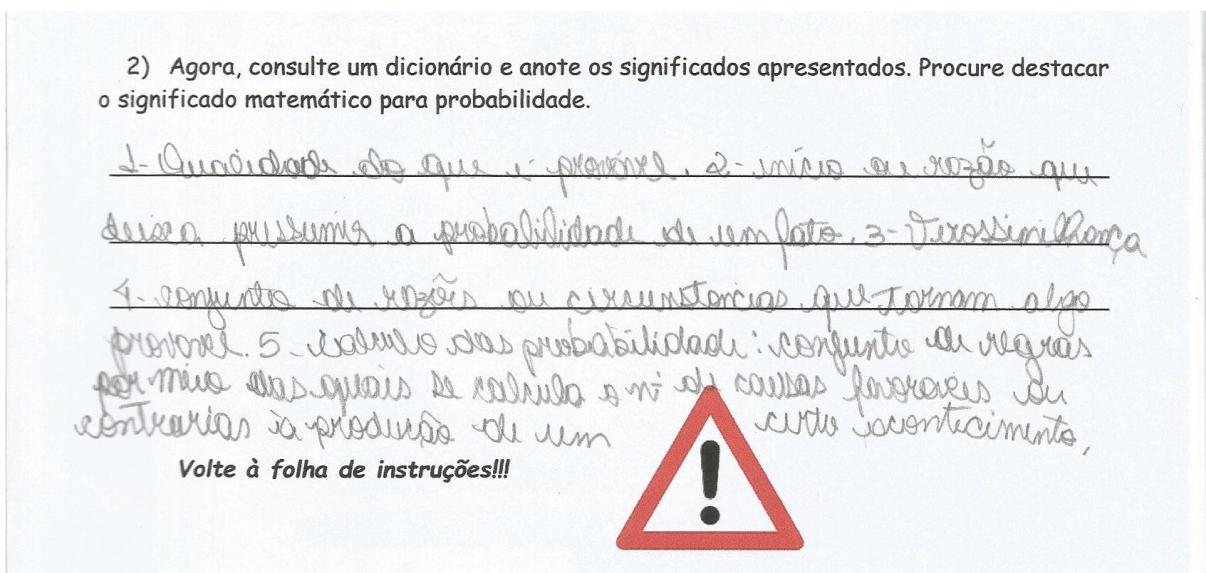 2) Agora, consulte um dicionário e anote os significados apresentados. Procure destacar
o significado matemático para probabilidade.
1- Qualidade do que é provável. 2- início ou razão que
deixa pressumir a probabilidade de um fato. 3- Verossimilhança
4- conjunto de razões ou circunstancias que tornam algo
provavel. 5- calculo das probabilidade: conjunto de regras
por meio das quais se calcula o nº de causas favoraveis ou
contrarias à produção de um certo acontecimento,
Volte à folha de instruções!!!